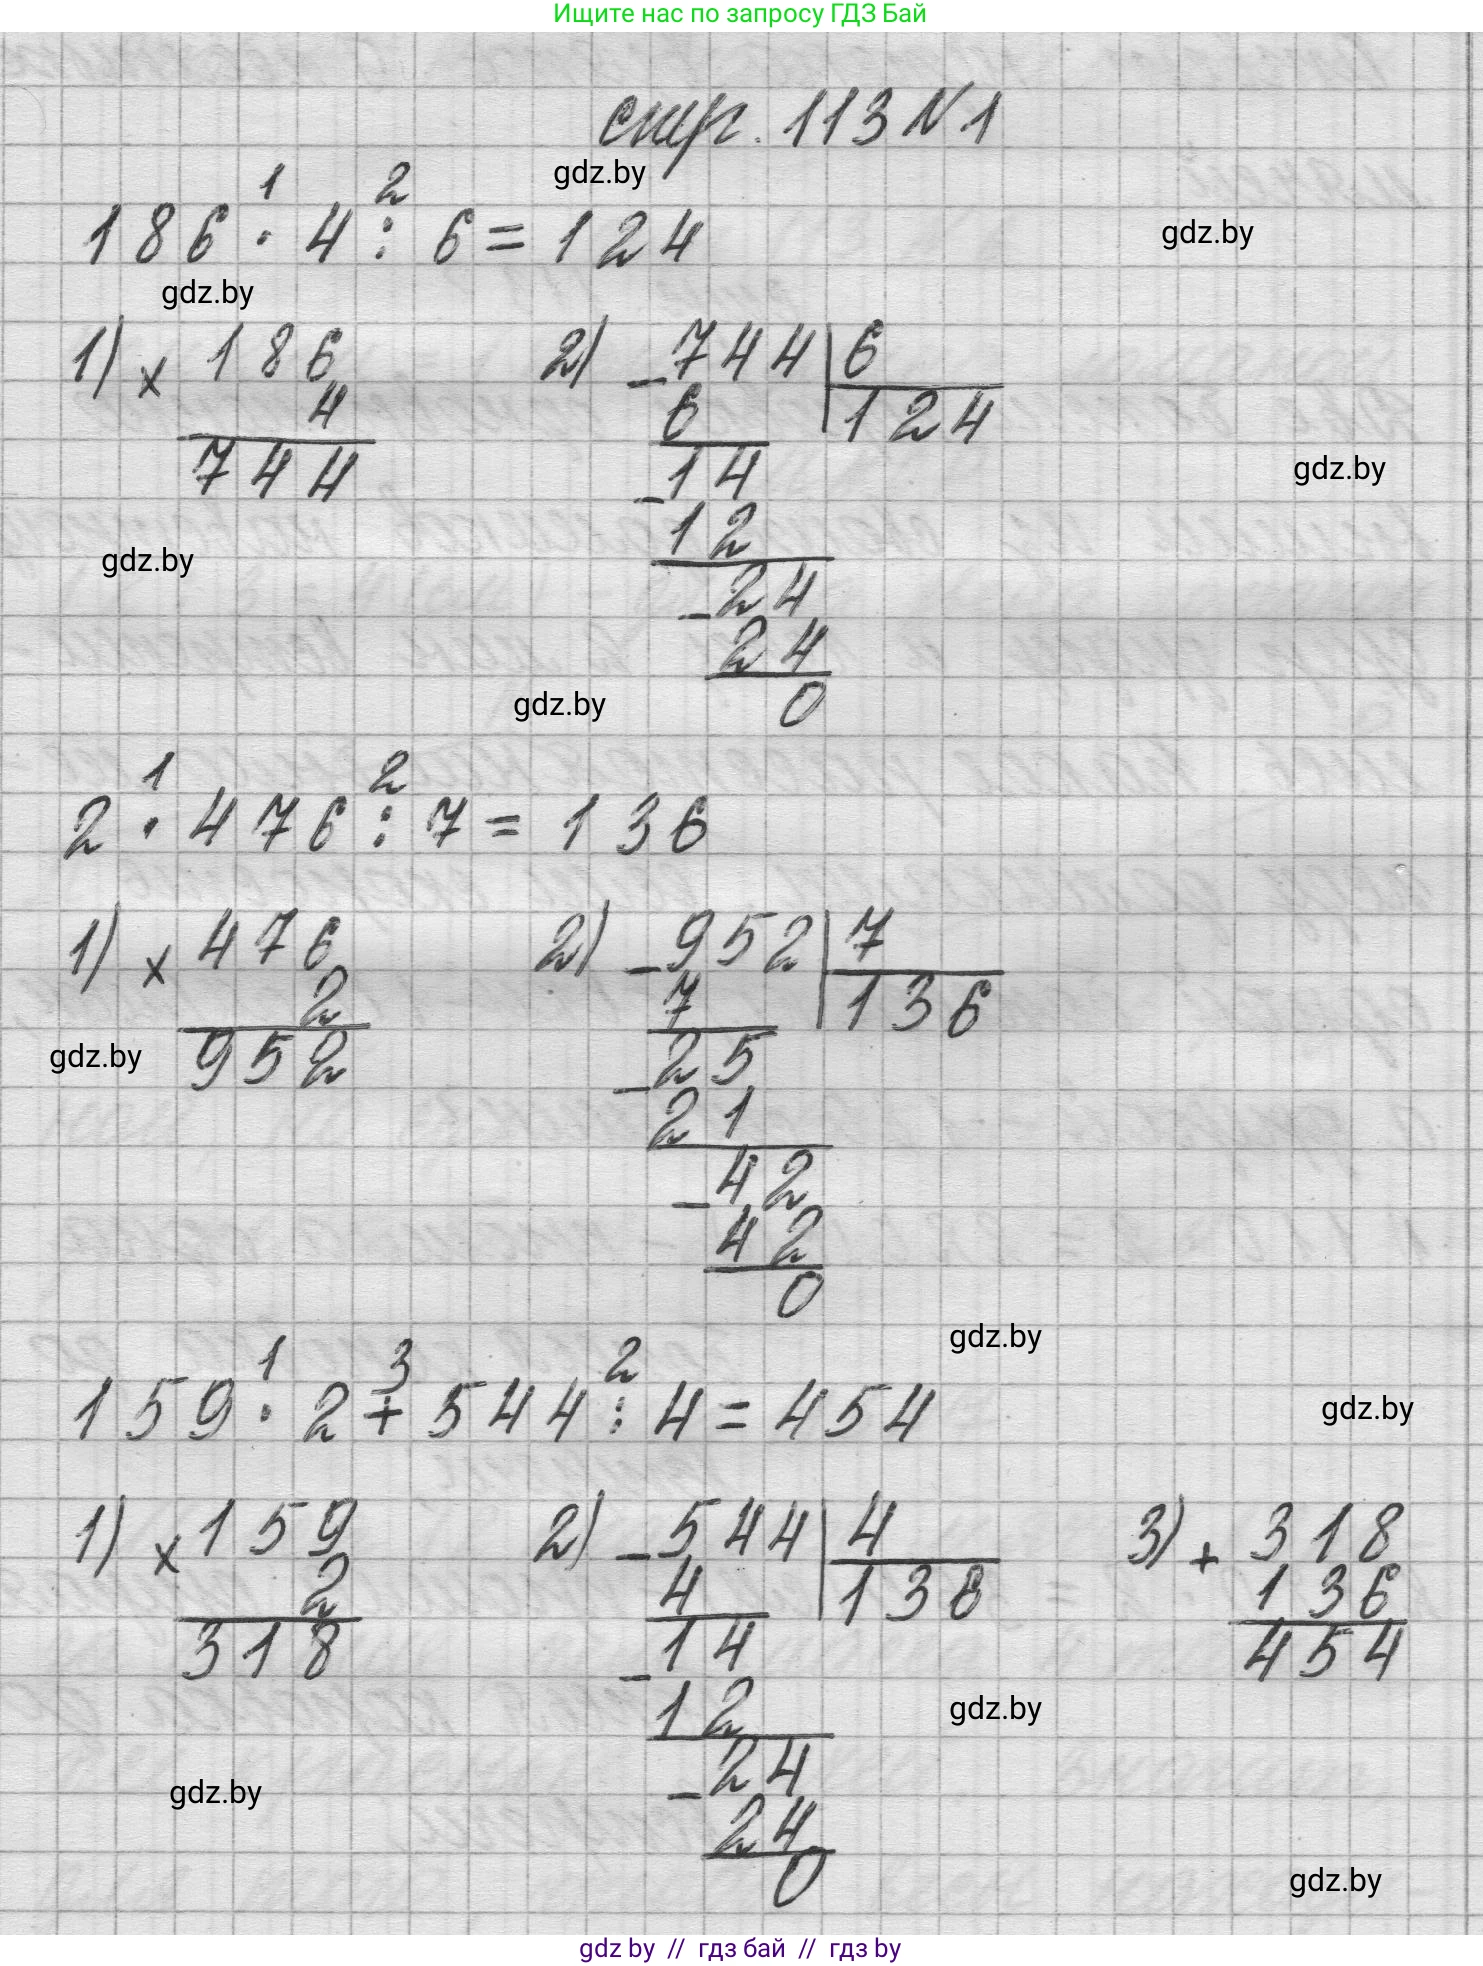 Ищите нас по запросу ГДЗ Бай
стр. 113 N 1
gdz.by
1 2
186 · 4 : 6 = 124
gdz.by
gdz.by
1) × 186
4
744
2) - 744 | 6
6 | 124
- 14
12
- 24
24
0
gdz.by
gdz.by
gdz.by
1 2
2 · 476 : 7 = 136
1) × 476
2
952
gdz.by
2) - 952 | 7
7 | 136
- 25
21
- 42
42
0
gdz.by
1 3 2
159 · 2 + 544 : 4 = 454
gdz.by
1) × 159
2
318
2) - 544 | 4
4 | 136
- 14
12
- 24
24
0
3) + 318
136
454
gdz.by
gdz.by
gdz.by
gdz by // гдз бай // гдз by